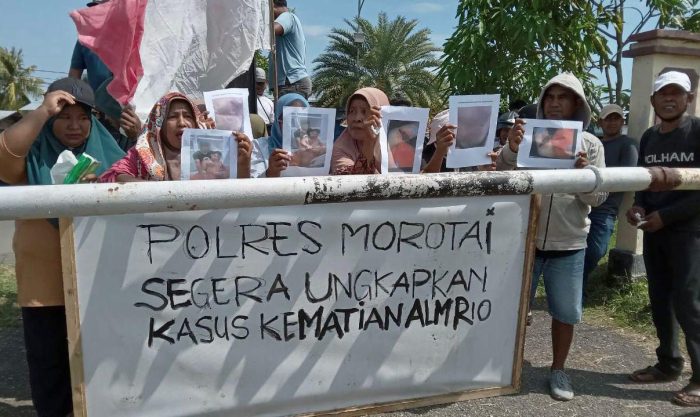 POLRES MOROTAI
SEGERA UNGKAPKAN
KASUS KEMATIAN ALM RIO
VOLHAM